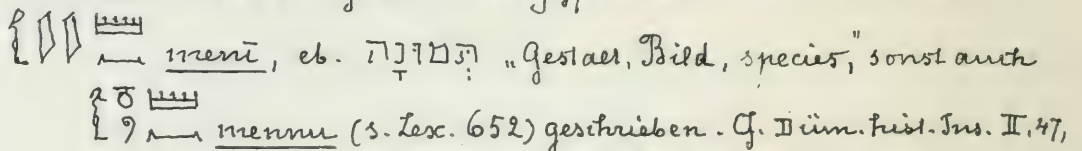 menī, eb. תְּמוּנָה „Gestalt, Bild, species," sonst auch
mennu (s. Lex. 652) geschrieben. Cf. Düm. hist. Ins. II, 47,